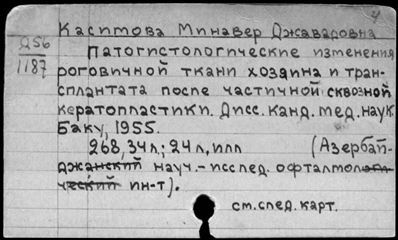 Касимова Минавер Джаваровна
Д56
1187
Патогистологические изменения
роговичной ткани хозяина и тран-
сплантата после частичной сквозной
кератопластики. Дисс. канд. мед. наук
Баку, 1955.
268, 34 л.; 24 л, илл (Азербай-
джанский науч.-исслед. офталмоло-
ческий ин-т).
см. след. карт.